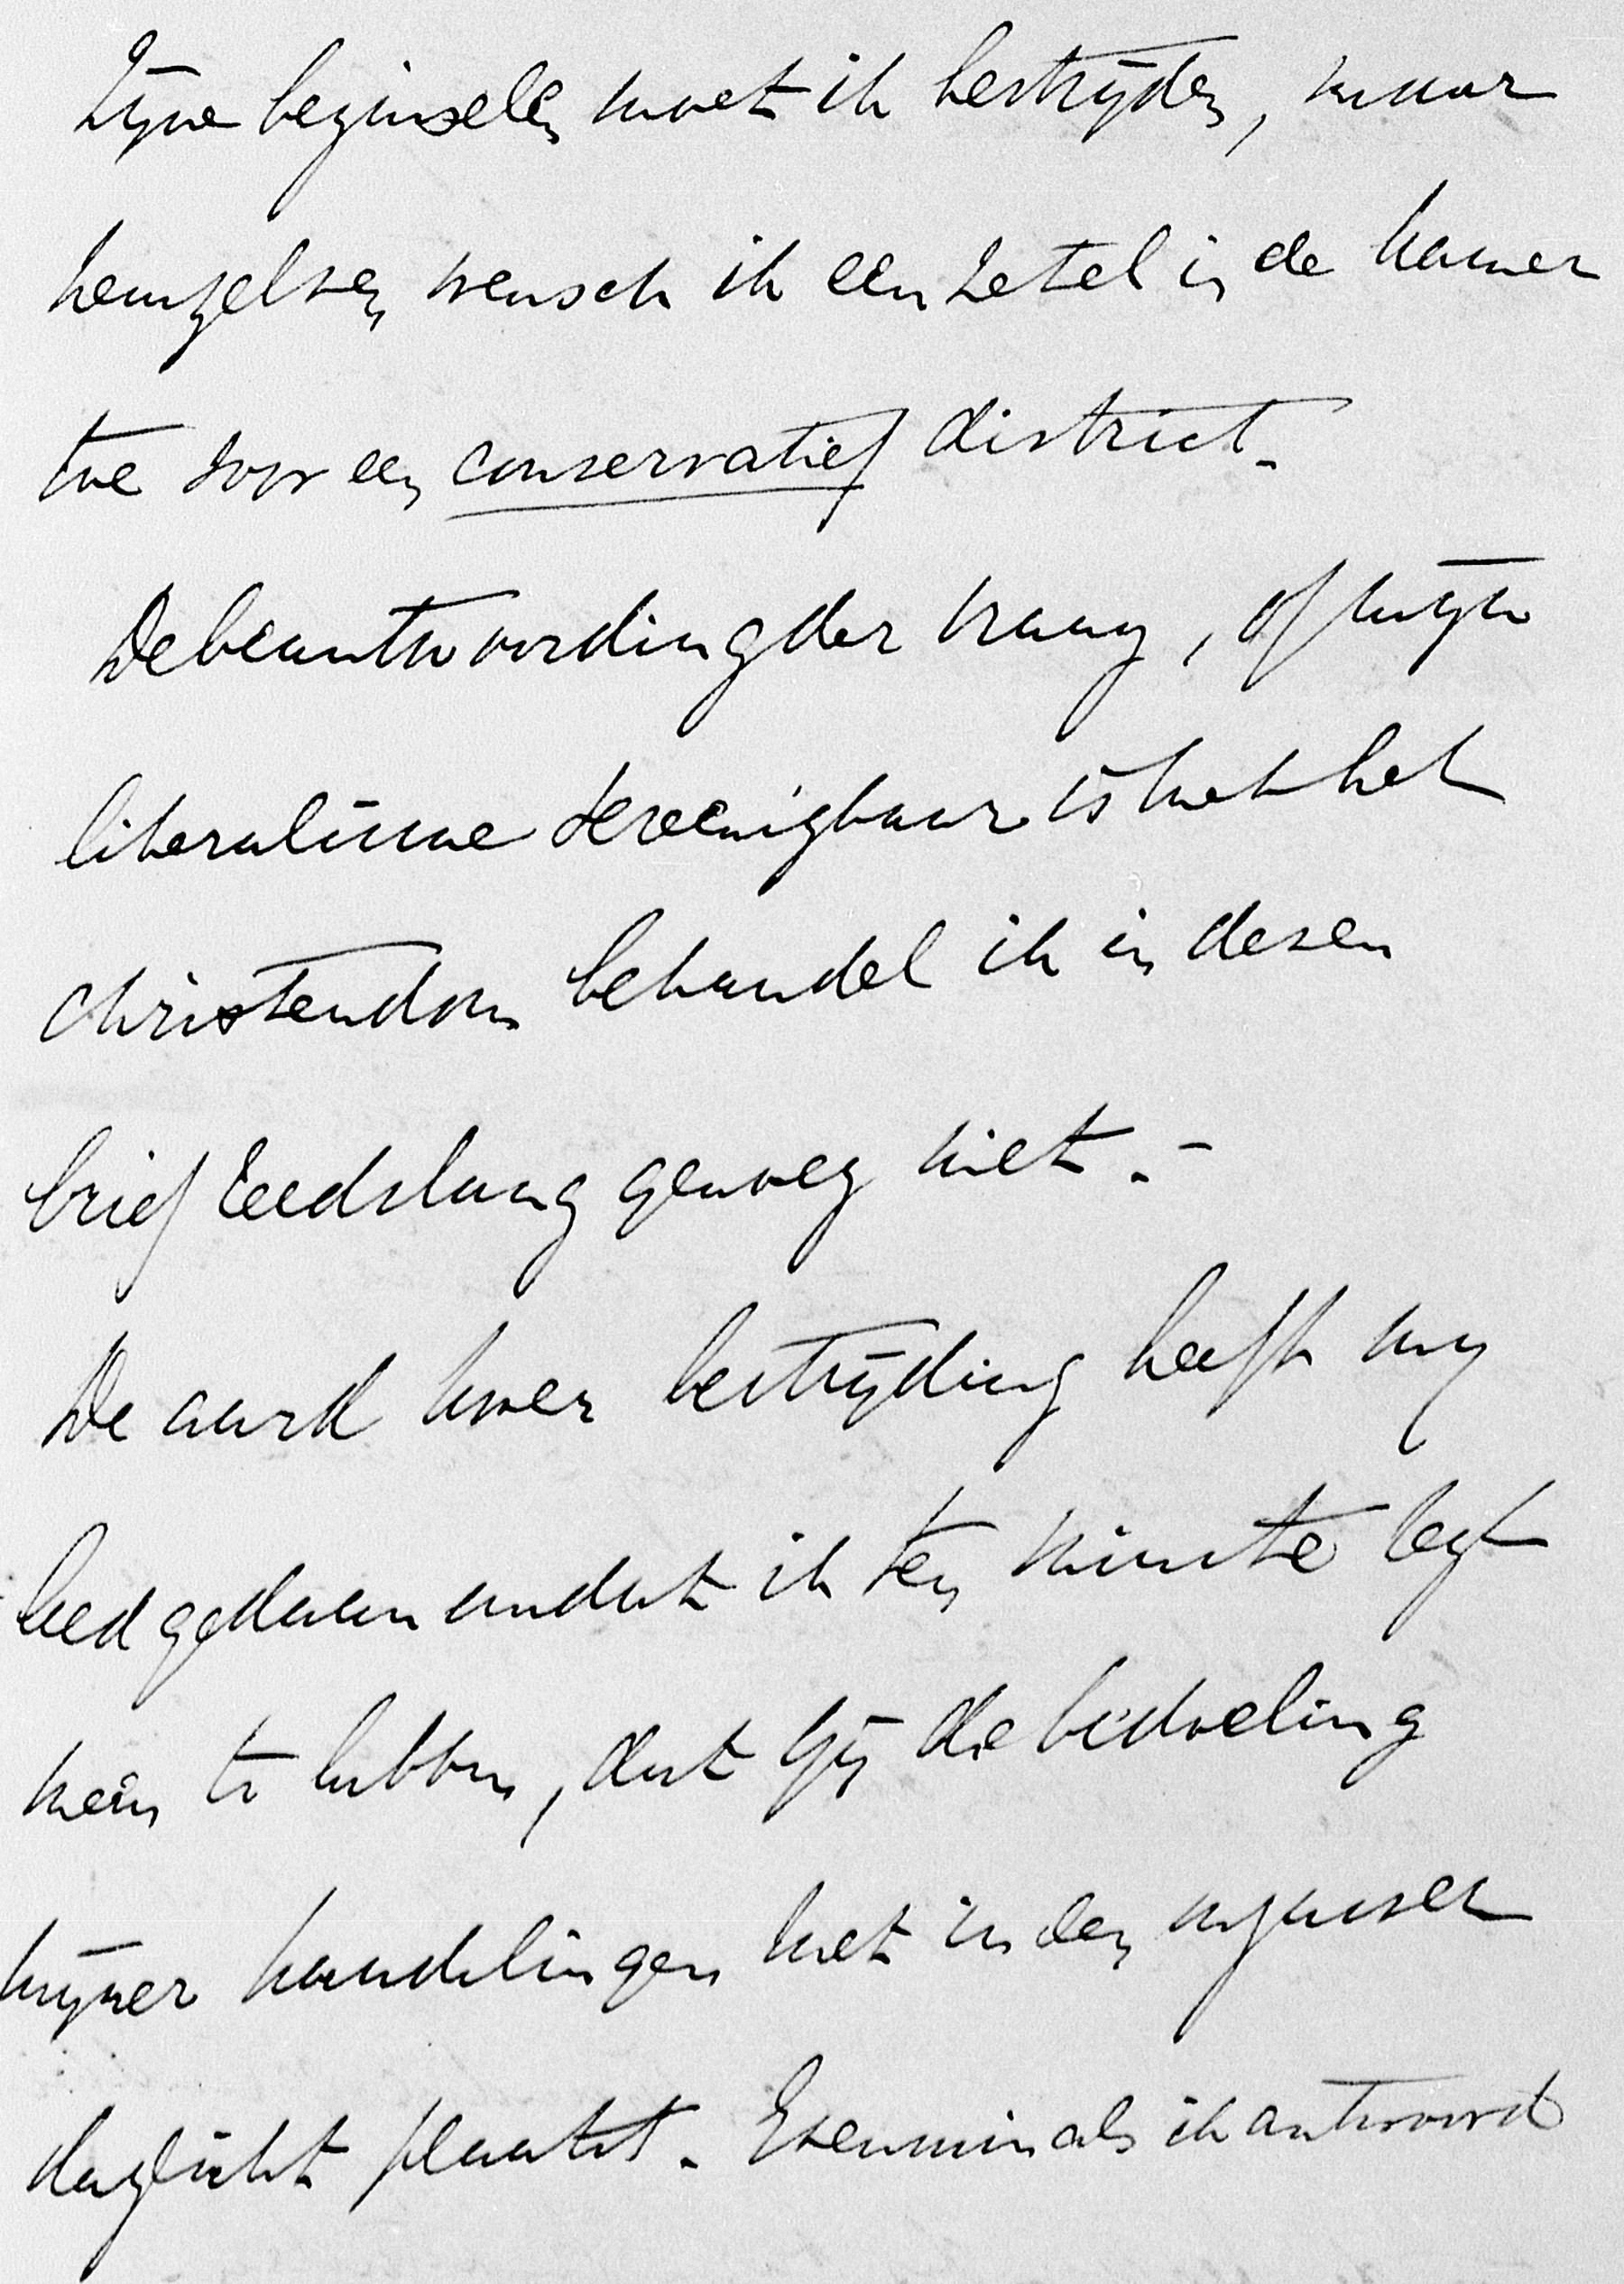 Zijne beginselen moet ik bestrijden, maar
hemzelven wensch ik een zetel in de kamer
toe voor een conservatief district.
De beantwoording der vraag, of mijn
liberalisme vereenigbaar is met het
christendom behandel ik in dezen
brief reeds lang genoeg niet. -
De aard uwer bestrijding heeft my
leed gedaan omdat ik ten minste regt
meen te hebben, dat gij de bedoeling
mijner handelingen niet in den
daglicht plaatst. Evenmin als ik antwoord